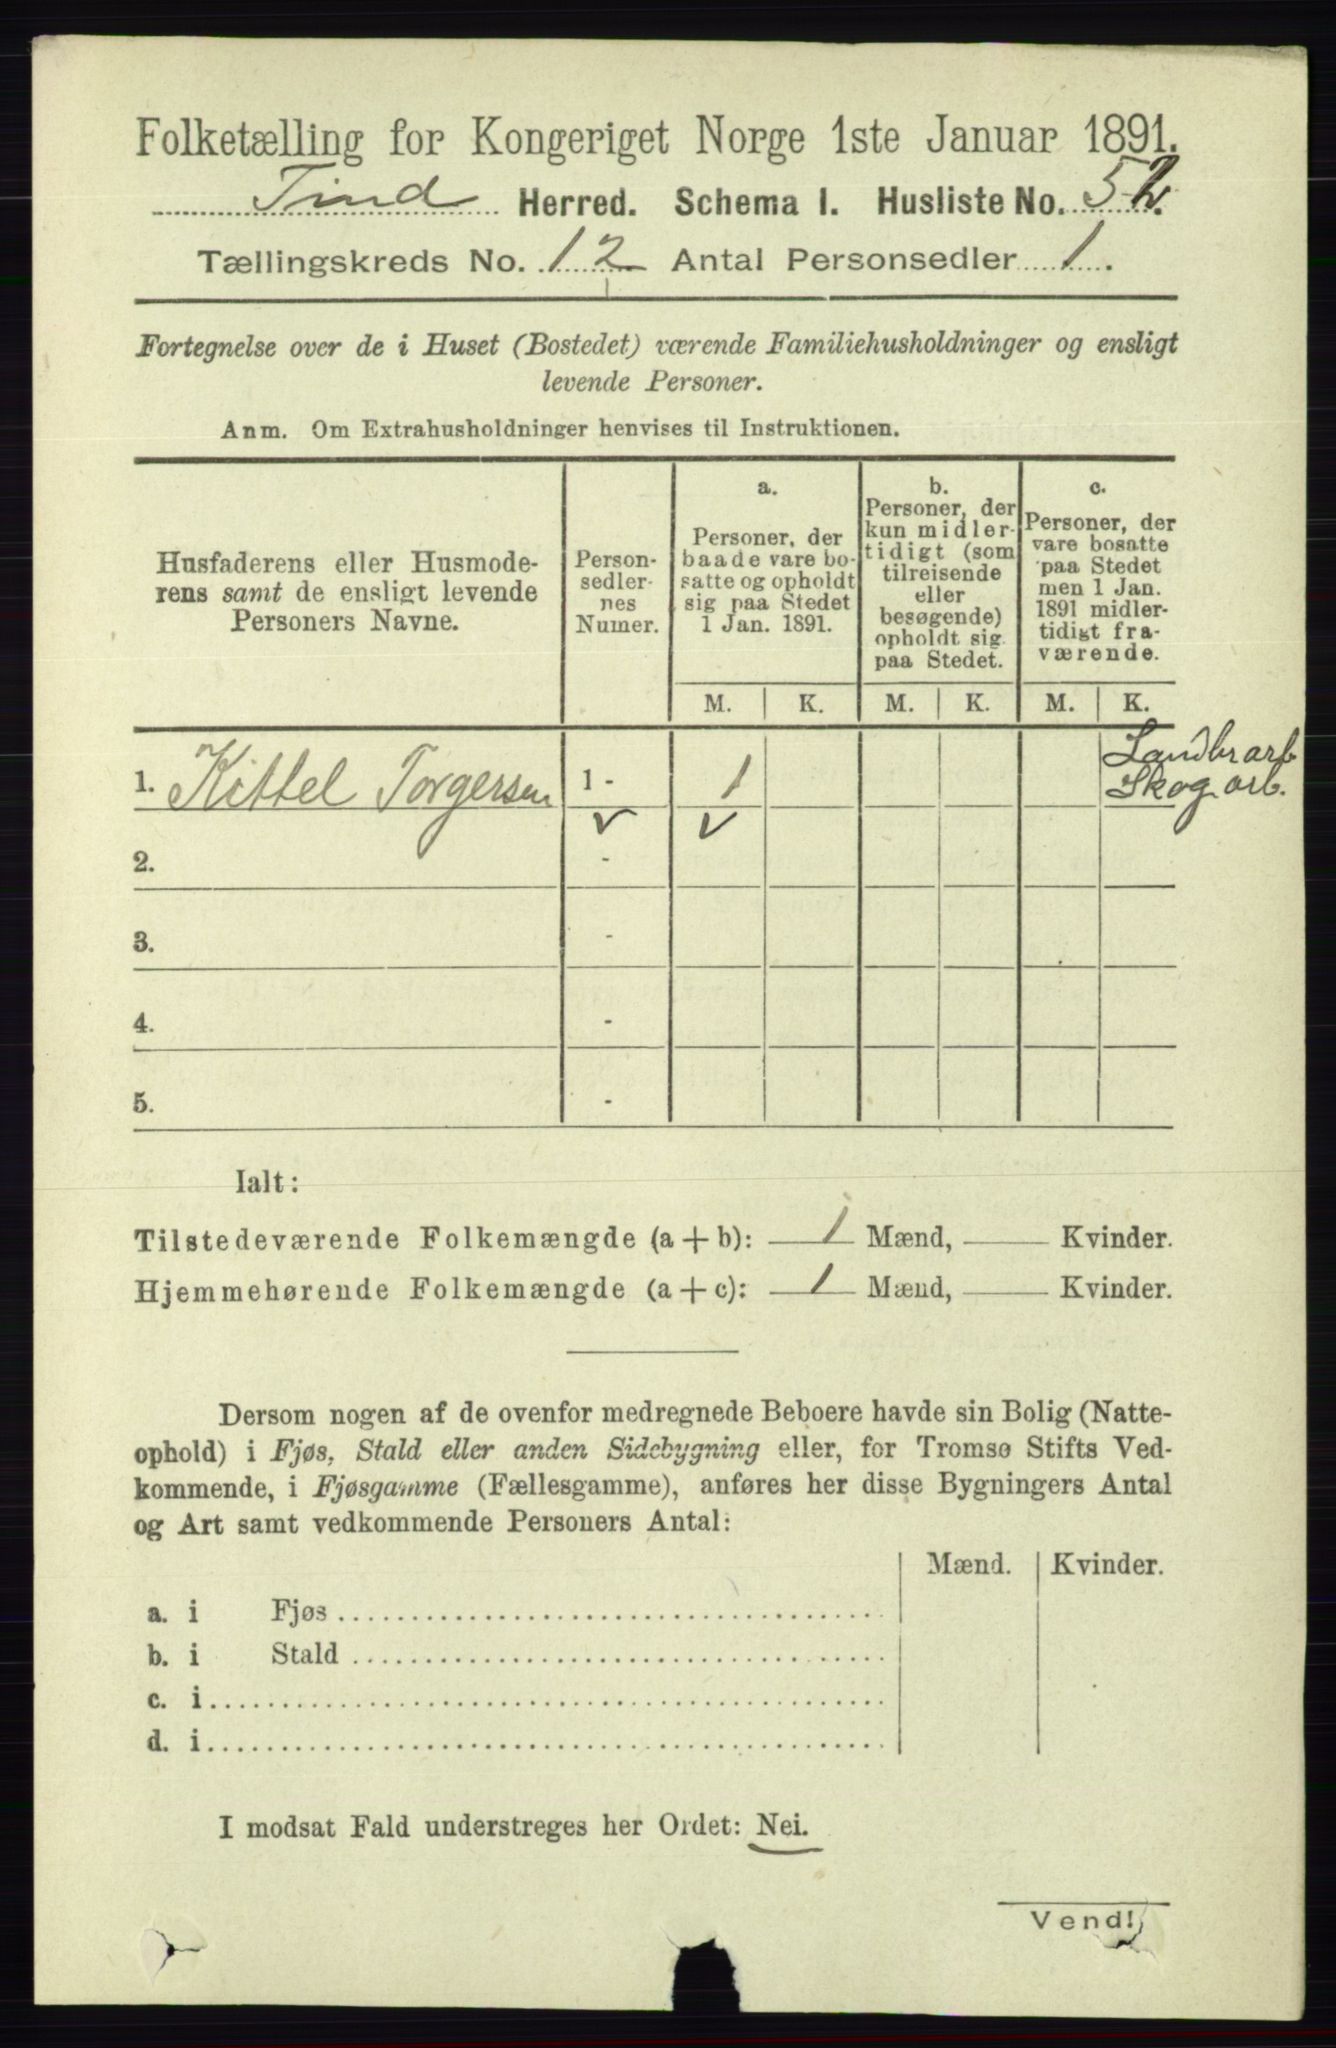 Folketælling for Kongeriget Norge 1ste Januar 1891.
Tind Herred. Schema I. Husliste No. 52.
Tællingskreds No. 12 Antal Personsedler 1.
Fortegnelse over de i Huset (Bostedet) værende Familiehusholdninger og ensligt
levende Personer.
Anm. Om Extrahusholdninger henvises til Instruktionen.
Husfaderens eller Husmode-
rens samt de ensligt levende
Personers Navne.
Person-
sedler-
nes
Numer.
a.
Personer, der
baade vare bo-
satte og opholdt
sig paa Stedet
1 Jan. 1891.
b.
Personer, der
kun midler-
tidigt (som
tilreisende
eller
besøgende)
opholdt sig
paa Stedet.
c.
Personer, der
vare bosatte
paa Stedet
men 1 Jan.
1891 midler-
tidigt fra-
værende.
M. K. M. K. M. K.
1. Kittel Torgersen 1 - 1 Landbr arb
Skog arb.
2. -
3. -
4. -
5. -
Ialt:
Tilstedeværende Folkemængde (a + b): 1 Mænd, Kvinder.
Hjemmehørende Folkemængde (a + c): 1 Mænd, Kvinder.
Dersom nogen af de ovenfor medregnede Beboere havde sin Bolig (Natte-
ophold) i Fjøs, Stald eller anden Sidebygning eller, for Tromsø Stifts Ved-
kommende, i Fjøsgamme (Fællesgamme), anføres her disse Bygningers Antal
og Art samt vedkommende Personers Antal:
Mænd. Kvinder.
a. i Fjøs
b. i Stald
c. i
d. i
I modsat Fald understreges her Ordet: Nei.
Vend!